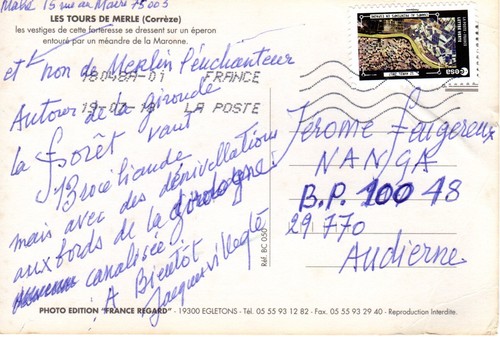 15 rue au Maire 75003
LES TOURS DE MERLE (Corrèze)
les vestiges de cette forteresse se dressent sur un éperon
entouré par un méandre de la Maronne.
et non de Merlin l'enchanteur
18048A-01 FRANCE
LA POSTE
Autour de la gironde
la forêt vaut
Brocéliande
mais avec des dénivellations
aux fonds de la
canalisée.
A Bientôt
Jacques Villeglé
Jerome Feugereux
NANGA
B.P. 100 48
29 770
Audierne
esa
Réf. BC 050
PHOTO EDITION "FRANCE REGARD" - 19300 EGLETONS - Tél. 05 55 93 12 82 - Fax. 05 55 93 29 40 - Reproduction Interdite.